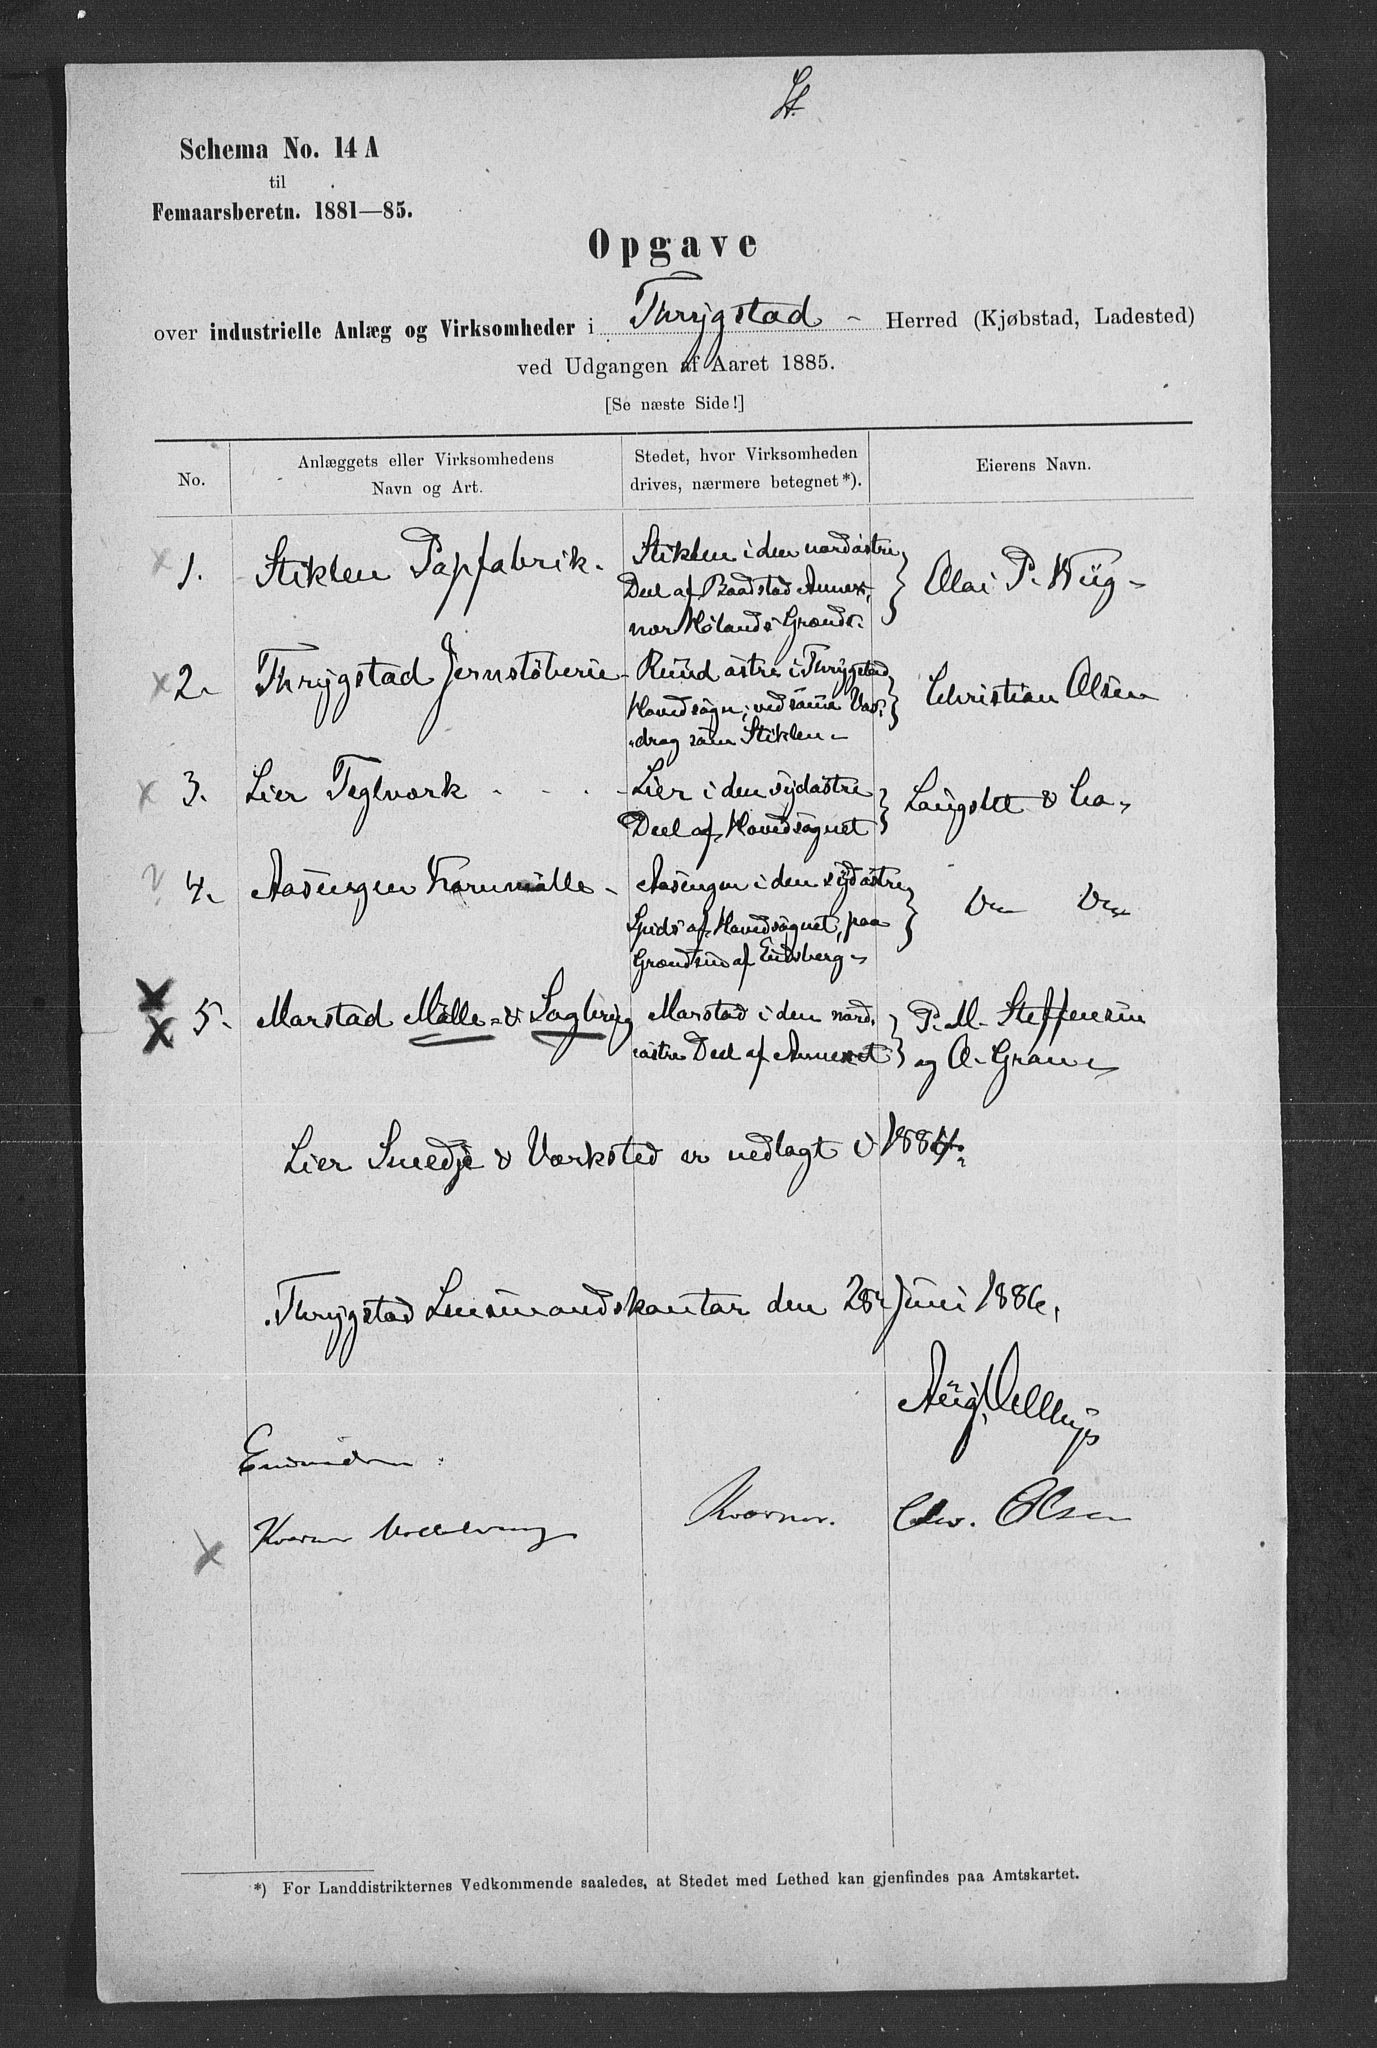 St.
Schema No. 14 A
til
Femaarsberetn. 1881—85.
Opgave
over industrielle Anlæg og Virksomheder i Thrygstad Herred (Kjøbstad, Ladested)
ved Udgangen af Aaret 1885.
[Se næste Side!]
No.
Anlæggets eller Virksomhedens
Navn og Art.
Stedet, hvor Virksomheden
drives, nærmere betegnet *).
Eierens Navn.
1. Stiklen Papfabrik.
Stiklen i den nordöstre
Deel af Baadstad Annex,
nær Hölands Grændse.
Olai P. Wiig
2. Thrygstad Jernstöberie
Rund östre i Thrygstad
Hovedsogn, ved samme Vas-
drag som Stiklen
Christian Olsen
3. Lier Teglværk
Lier i den sydöstre
Deel af Hovedsognet
Langslet & Co.
4. Aasengen Kornmölle
Aasengen i den sydöstre
Spids af Hovedsognet, paa
Grændsen af Eidsberg
Do Do
5. Marstad Mölle- & Sagbrug
Marstad i den nord-
östre Deel af Annexet
P. M. Steffensen
og A. Gran
Lier Smedje & Værksted er nedlagt i 1884.
Thrygstad Lensmandskontor den 28 Juni 1886.
Aug.
Kværner
Kværner. Chr. Olsen
*) For Landdistrikternes Vedkommende saaledes, at Stedet med Lethed kan gjenfindes paa Amtskartet.